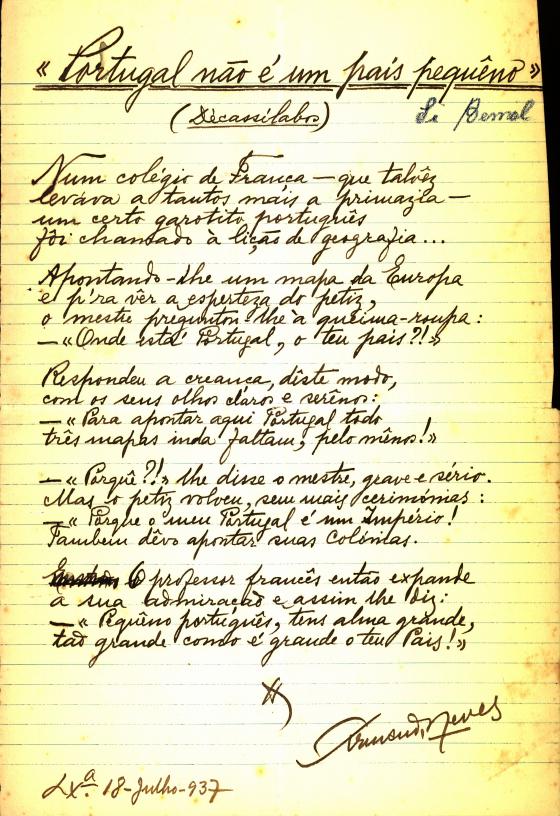 « Portugal não é um país pequêno »
(Decassílabos)
Num colégio de França — que talvêz
levava a tantos mais a primazia —
um certo garotito português
fôi chamado à lição de geografia...
Apontando-lhe um mapa da Europa
e p'ra vêr a esperteza do petiz,
o mestre preguntou-lhe à queima-roupa:
— «Onde está Portugal, o teu país?!»
Respondeu a creança, dêste modo,
com os seus olhos claros e serênos:
— «Para apontar aqui Portugal todo
três mapas inda faltam, pelo mênos!»
— «Porquê?!» lhe disse o mestre, grave e sério.
Mas o petiz volveu, sem mais cerimónias:
— «Porque o meu Portugal é um Império!
Tambem dêvo apontar suas colónias.
O professor francês então expande
a sua admiração e assim lhe diz:
— «Pequêno português, tens alma grande,
tão grande como é grande o teu País!»
Armando Neves
Lxª. 18-Julho-937